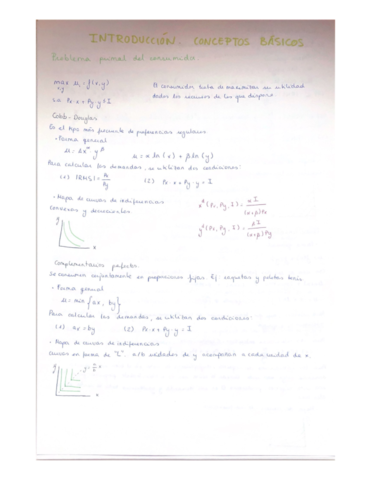 INTRODUCCIÓN. CONCEPTOS BÁSICOS
Problema primal del consumidor
max u = f(x,y)
x,y
s.a. Px·x + Py·y = I
El consumidor trata de maximizar su utilidad
dados los recursos de los que dispone
Cobb-Douglas
Es el tipo más frecuente de preferencias regulares
· Forma general
u = Ax^α y^β    u = α ln(x) + β ln(y)
Para calcular las demandas, se utilizan dos condiciones:
(1) |RMS| = Px/Py    (2) Px·x + Py·y = I
· Mapa de curvas de indiferencia
Convexas y decrecientes
x*(Px, Py, I) = αI/(α+β)Px
y*(Px, Py, I) = βI/(α+β)Py
y
x
Complementarios perfectos
Se consumen conjuntamente en proporciones fijas. Ej:
· Forma general
u = min {ax, by}
Para calcular las demandas, se utilizan dos condiciones:
(1) ax = by    (2) Px·x + Py·y = I
· Mapa de curvas de indiferencia
Curvas en forma de "L". a/b unidades de y acompañan a cada unidad de x.
y
y = a/b x
x